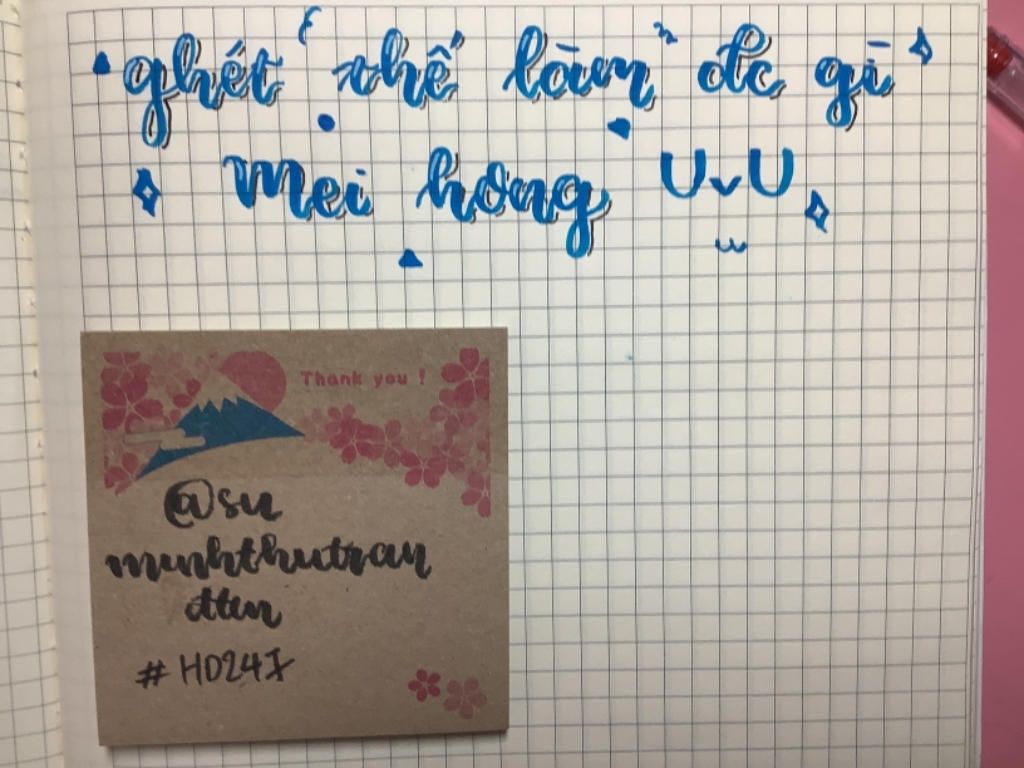 ghét thế làm đc gì
mei hơng UvU
Thank you !
@su
minhthutran
dttm
#HD247